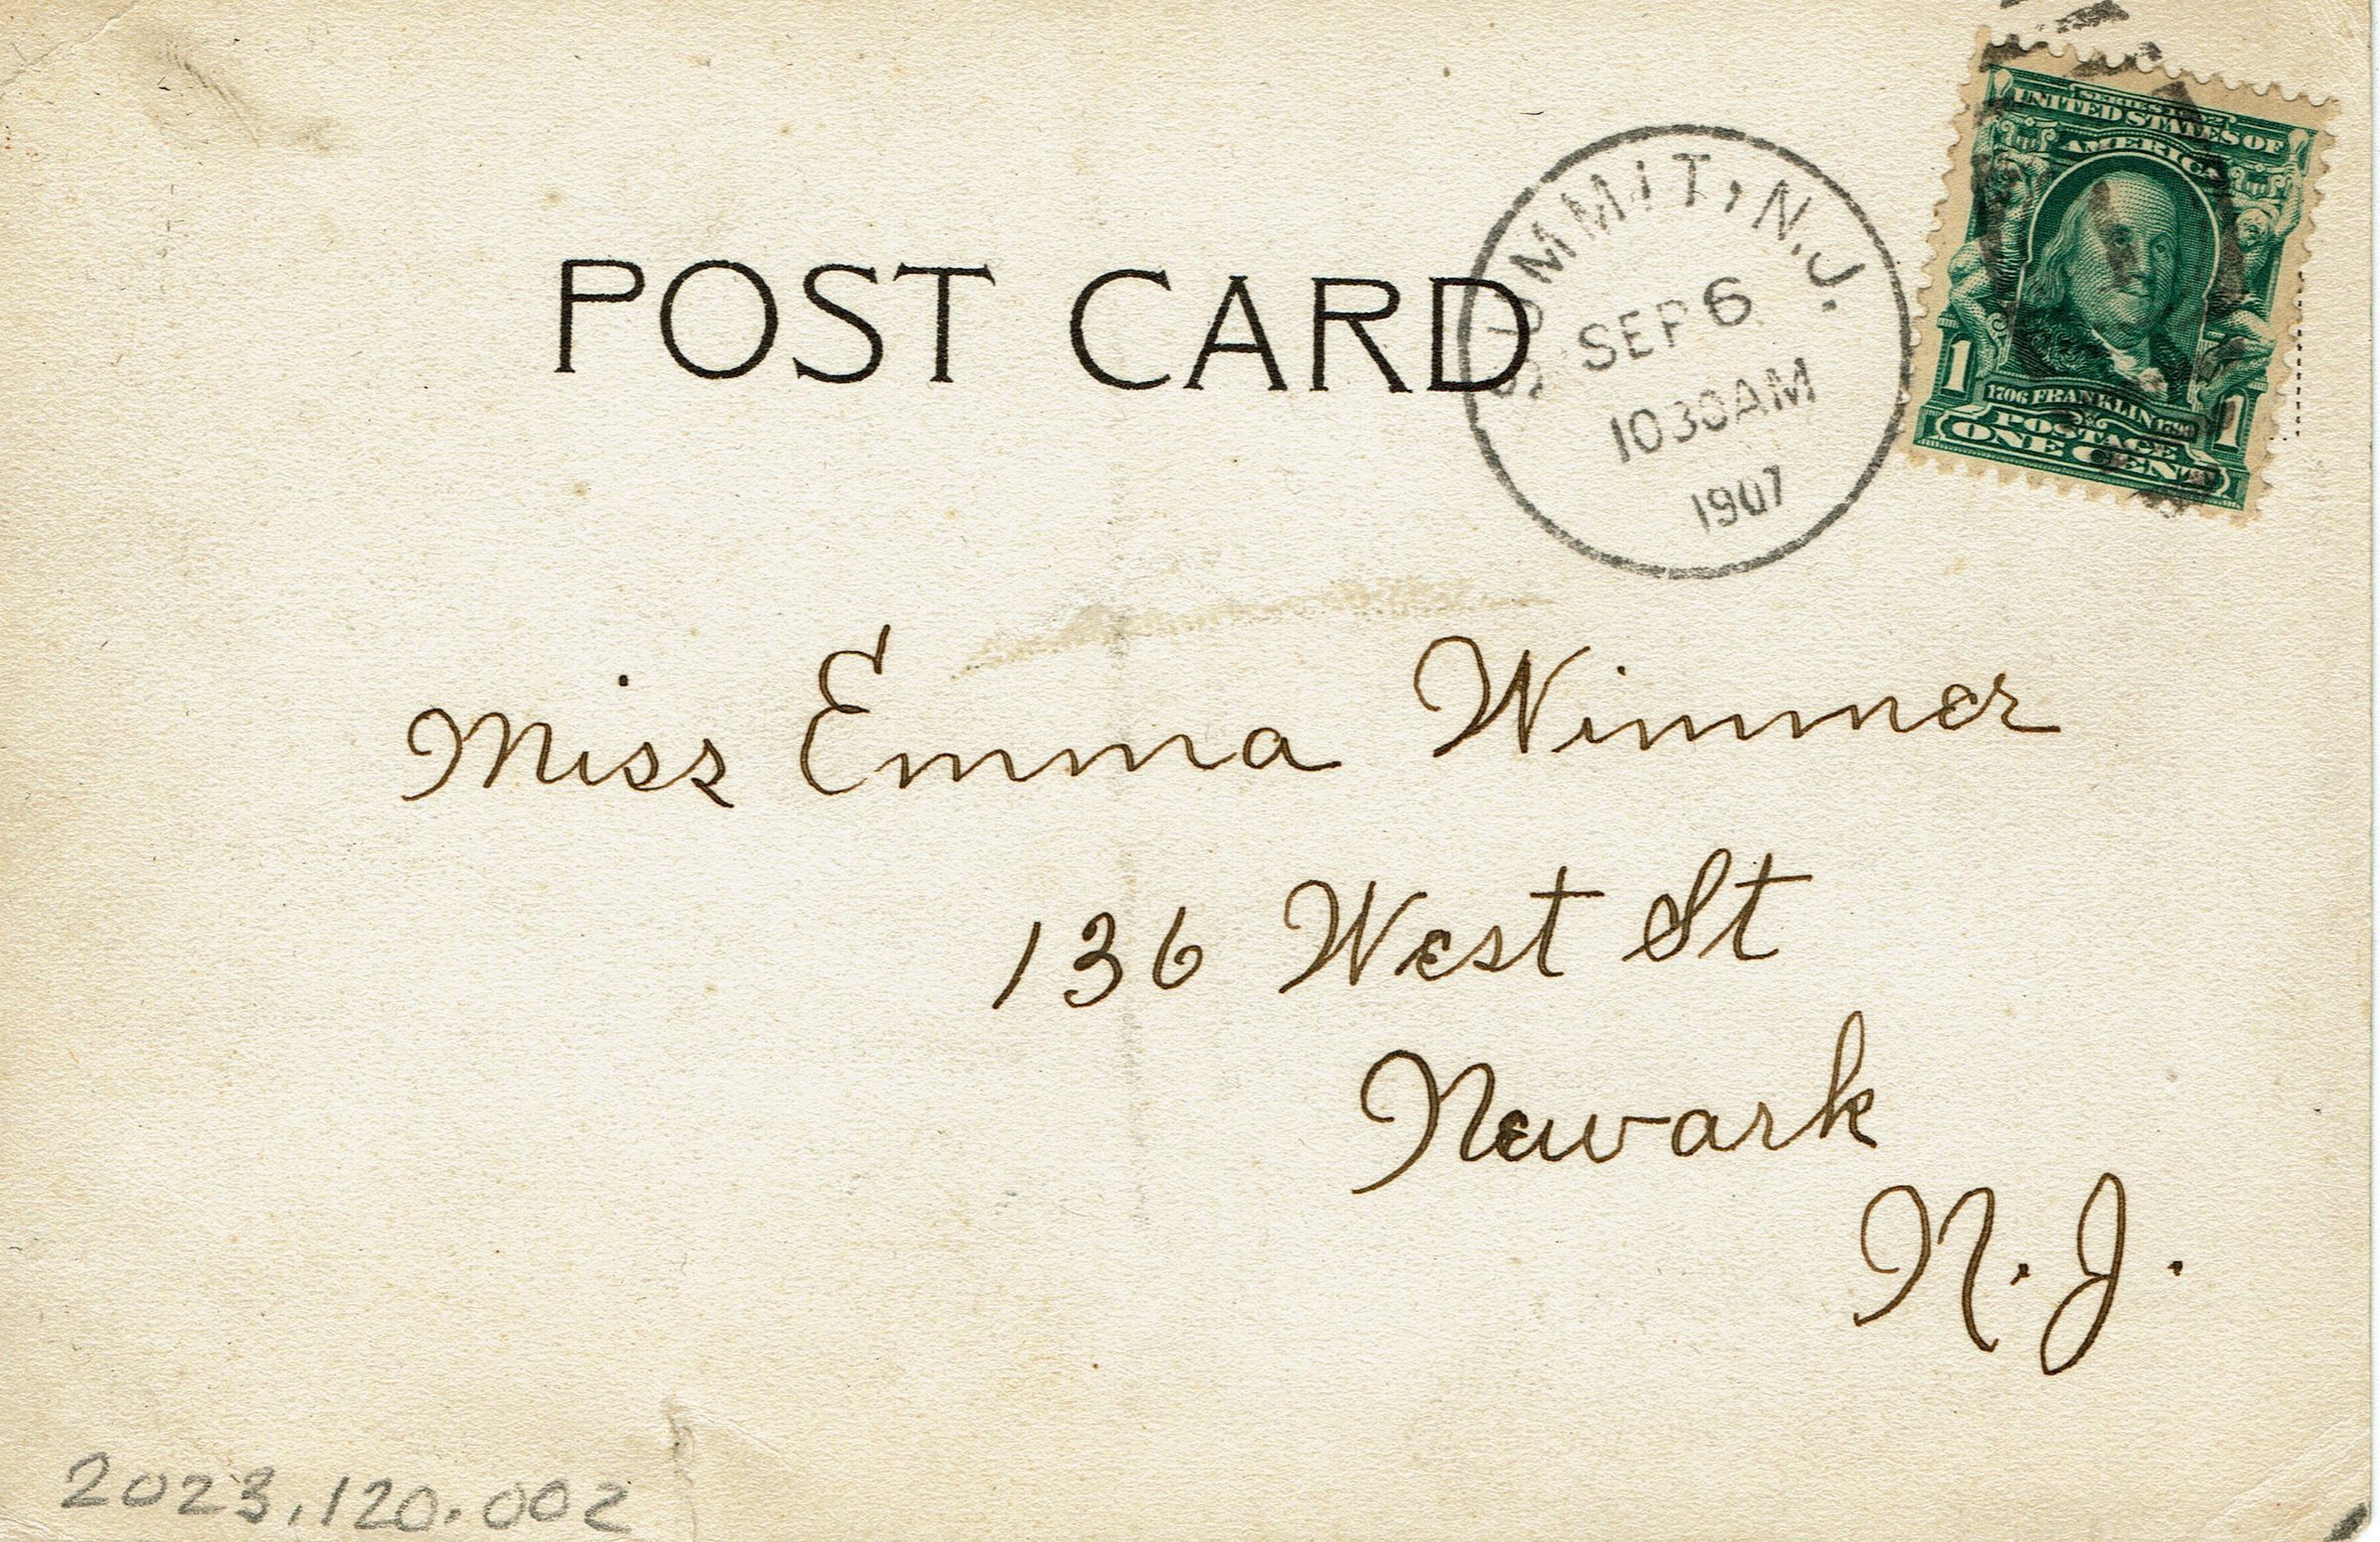 POST CARD
SUMMIT, N.J.
SEP 6
1030AM
1907
SERIES 1902
UNITED STATES OF
AMERICA
1 1706 FRANKLIN 1790 1
POSTAGE
ONE CENT
Miss Emma Wimmer
136 West St
Newark
N.J.
2023.120.002